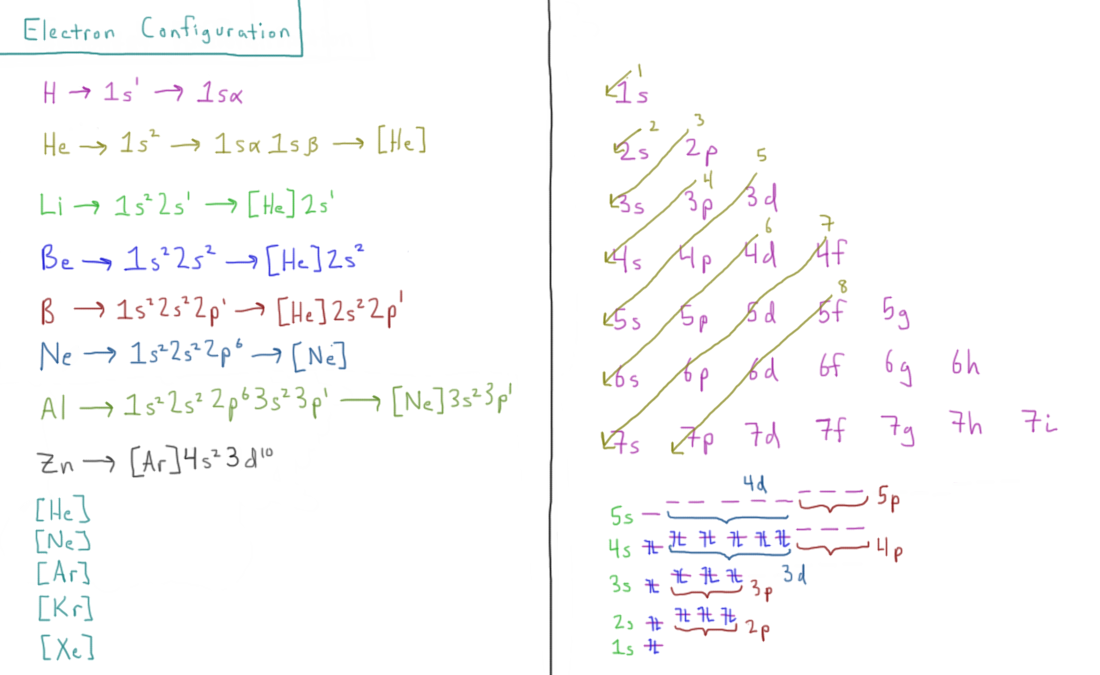 Electron Configuration
H → 1s¹ → 1sα
He → 1s² → 1sα 1sβ → [He]
Li → 1s²2s¹ → [He]2s¹
Be → 1s²2s² → [He]2s²
B → 1s²2s²2p¹ → [He]2s²2p¹
Ne → 1s²2s²2p⁶ → [Ne]
Al → 1s²2s²2p⁶3s²3p¹ → [Ne]3s²3p¹
Zn → [Ar]4s²3d¹⁰
[He]
[Ne]
[Ar]
[Kr]
[Xe]
1
1s
2 3
2s 2p 5
4
3s 3p 3d
6 7
4s 4p 4d 4f
8
5s 5p 5d 5f 5g
6s 6p 6d 6f 6g 6h
7s 7p 7d 7f 7g 7h 7i
4d
5s 5p
4s 4p
3d
3s 3p
2s 2p
1s